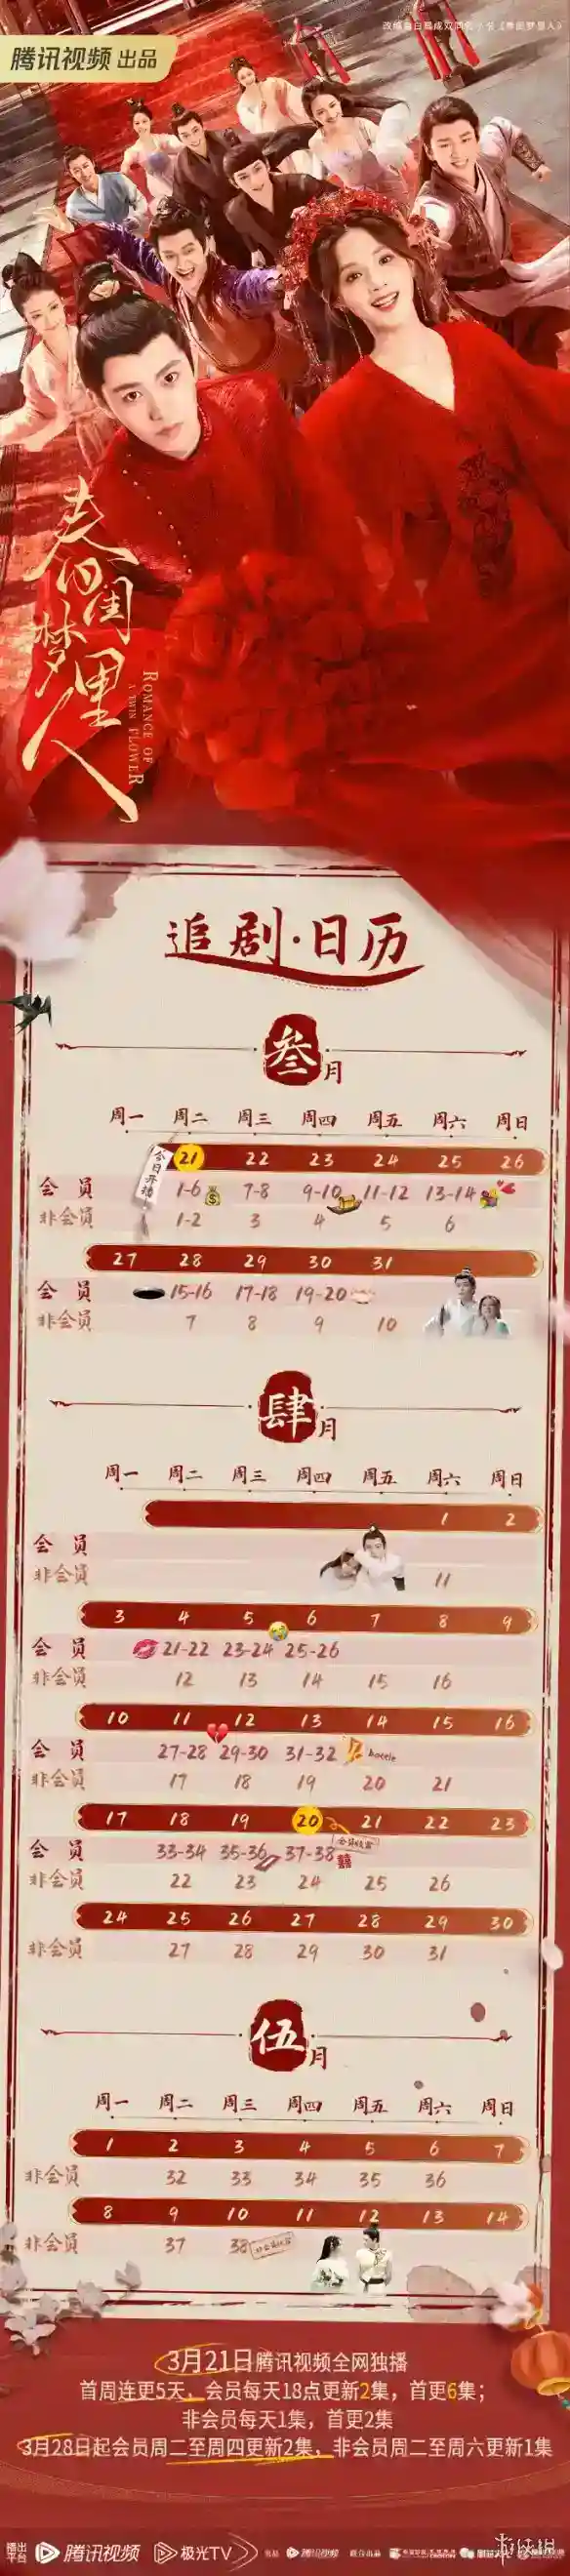 腾讯视频 出品
春闺梦里人
ROMANCE OF
A TWIN FLOWER
追剧·日历
叁月
周一 周二 周三 周四 周五 周六 周日
今日开播
21 22 23 24 25 26
会员 1-6 7-8 9-10 11-12 13-14
非会员 1-2 3 4 5 6
27 28 29 30 31
会员 15-16 17-18 19-20
非会员 7 8 9 10
肆月
周一 周二 周三 周四 周五 周六 周日
1 2
会员
非会员 11
3 4 5 6 7 8 9
会员 21-22 23-24 25-26
非会员 12 13 14 15 16
10 11 12 13 14 15 16
会员 27-28 29-30 31-32
battle
非会员 17 18 19 20 21
17 18 19 20 21 22 23
会员 33-34 35-36 37-38
囍
非会员 22 23 24 25 26
24 25 26 27 28 29 30
非会员 27 28 29 30 31
伍月
周一 周二 周三 周四 周五 周六 周日
1 2 3 4 5 6 7
非会员 32 33 34 35 36
8 9 10 11 12 13 14
非会员 37 38
3月21日腾讯视频全网独播
首周连更5天，会员每天18点更新2集，首更6集；
非会员每天1集，首更2集
3月28日起会员周二至周四更新2集，非会员周二至周六更新1集
播出平台 腾讯视频 极光TV
腾讯视频
游侠网